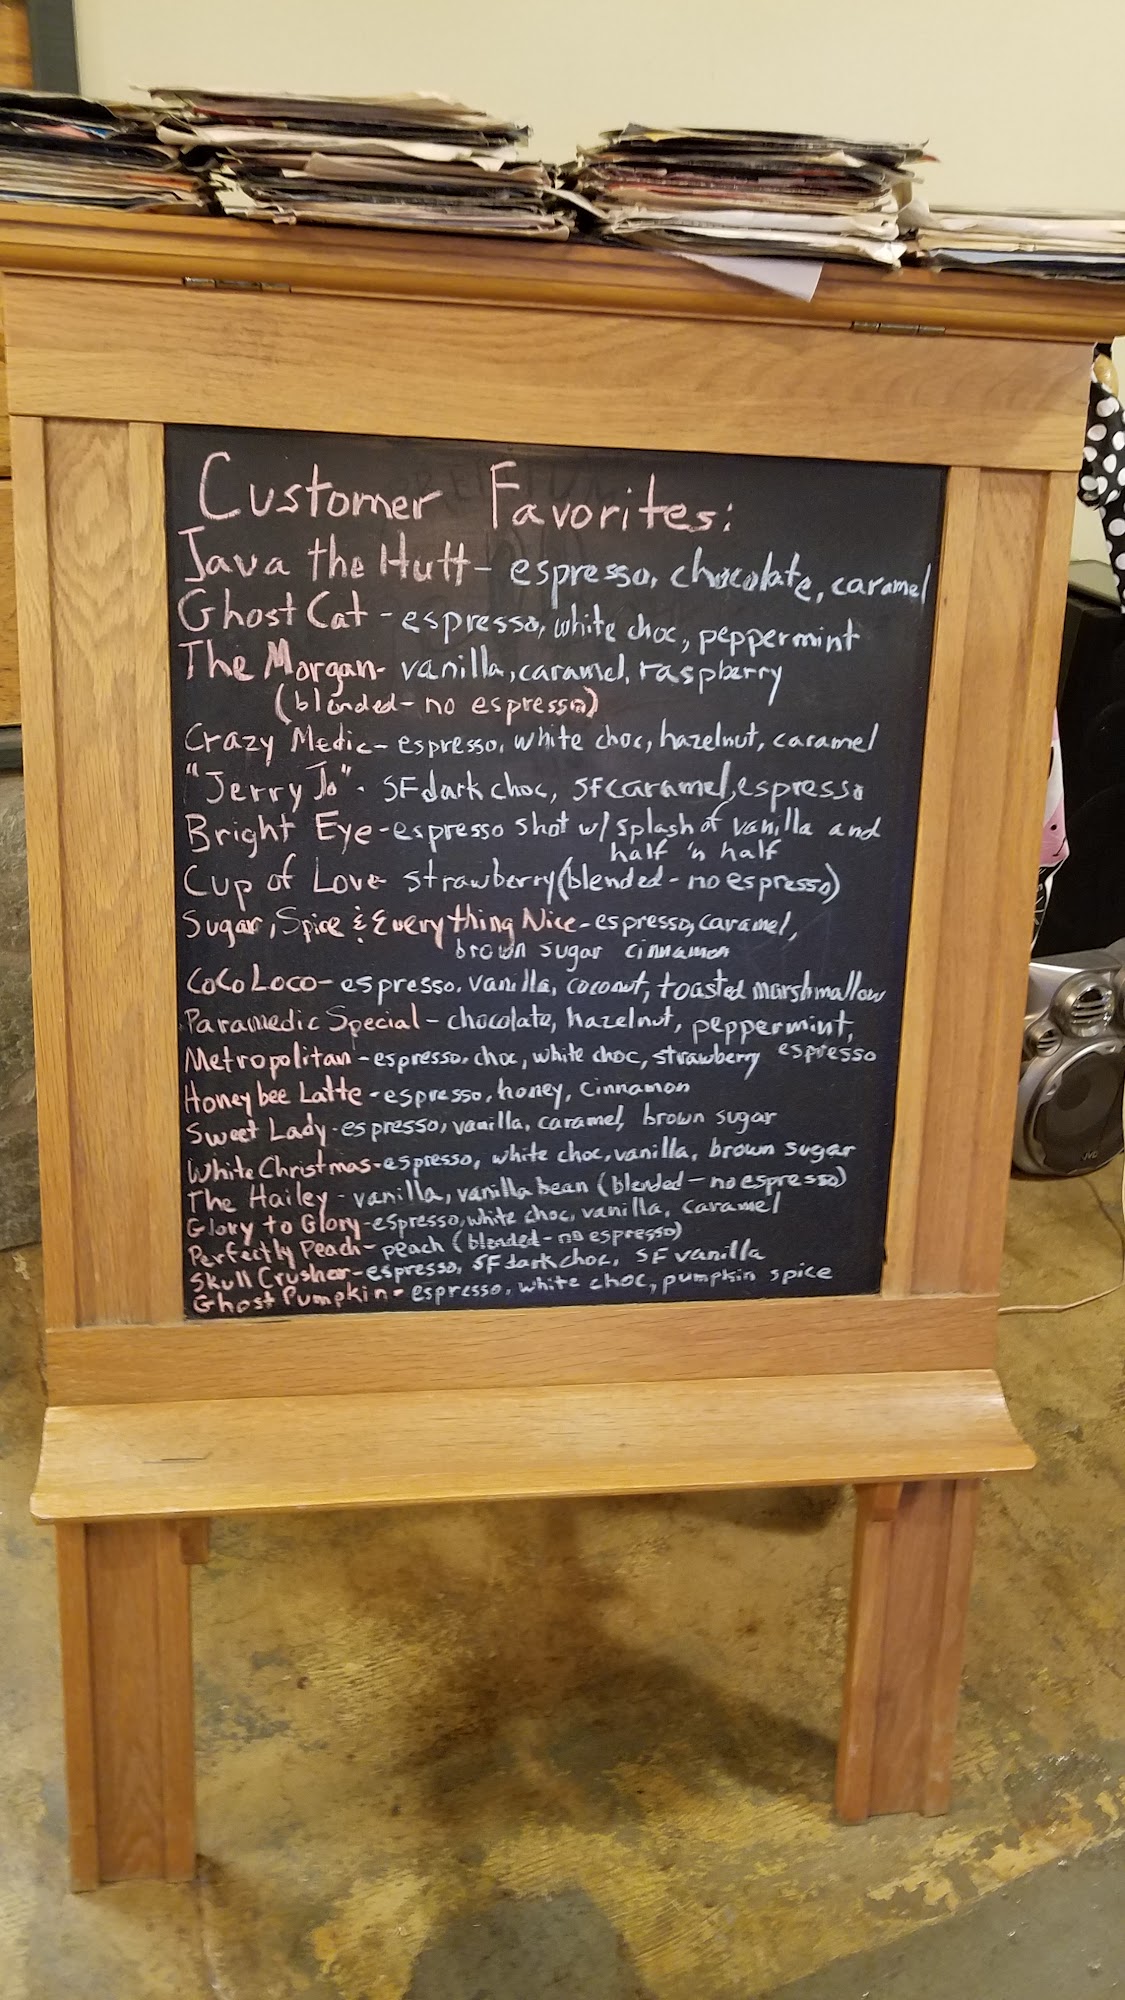 Customer Favorites:
Java the Hutt - espresso, chocolate, caramel
Ghost Cat - espresso, white choc, peppermint
The Morgan - vanilla, caramel, raspberry
(blended - no espresso)
Crazy Medic - espresso, white choc, hazelnut, caramel
"Jerry Jo" - SF dark choc, SF caramel, espresso
Bright Eye - espresso shot w/ splash of vanilla and
half 'n half
Cup of Love - strawberry (blended - no espresso)
Sugar, Spice & Everything Nice - espresso, caramel,
brown sugar cinnamon
CoCo Loco - espresso, vanilla, coconut, toasted marshmallow
Paramedic Special - chocolate, hazelnut, peppermint,
espresso
Metropolitan - espresso, choc, white choc, strawberry
Honeybee Latte - espresso, honey, cinnamon
Sweet Lady - espresso, vanilla, caramel, brown sugar
White Christmas - espresso, white choc, vanilla, brown sugar
The Hailey - vanilla, vanilla bean (blended - no espresso)
Glory to Glory - espresso, white choc, vanilla, caramel
Perfectly Peach - peach (blended - no espresso)
Skull Crusher - espresso, SF dark choc, SF vanilla
Ghost Pumpkin - espresso, white choc, pumpkin spice
JVC